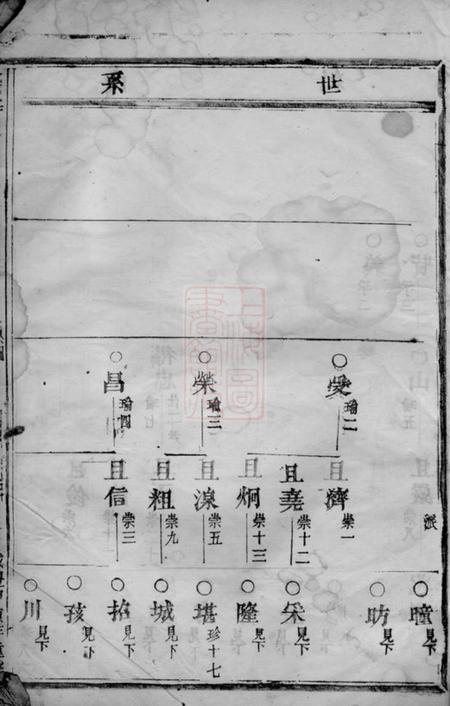 世系
○㚟 瑜二
○榮 瑜三
○昌 瑜四
派
且濟 崇一
且堯 崇十二
且炯 崇十三
且湶 崇五
且粗 崇九
且信 崇三
○瞳 見下
○昉 見下
○采 見下
○隆 見下
○堪 珍十七
○城 見下
○招 見下
○孩 見下
○川 見下
上海圖書館藏